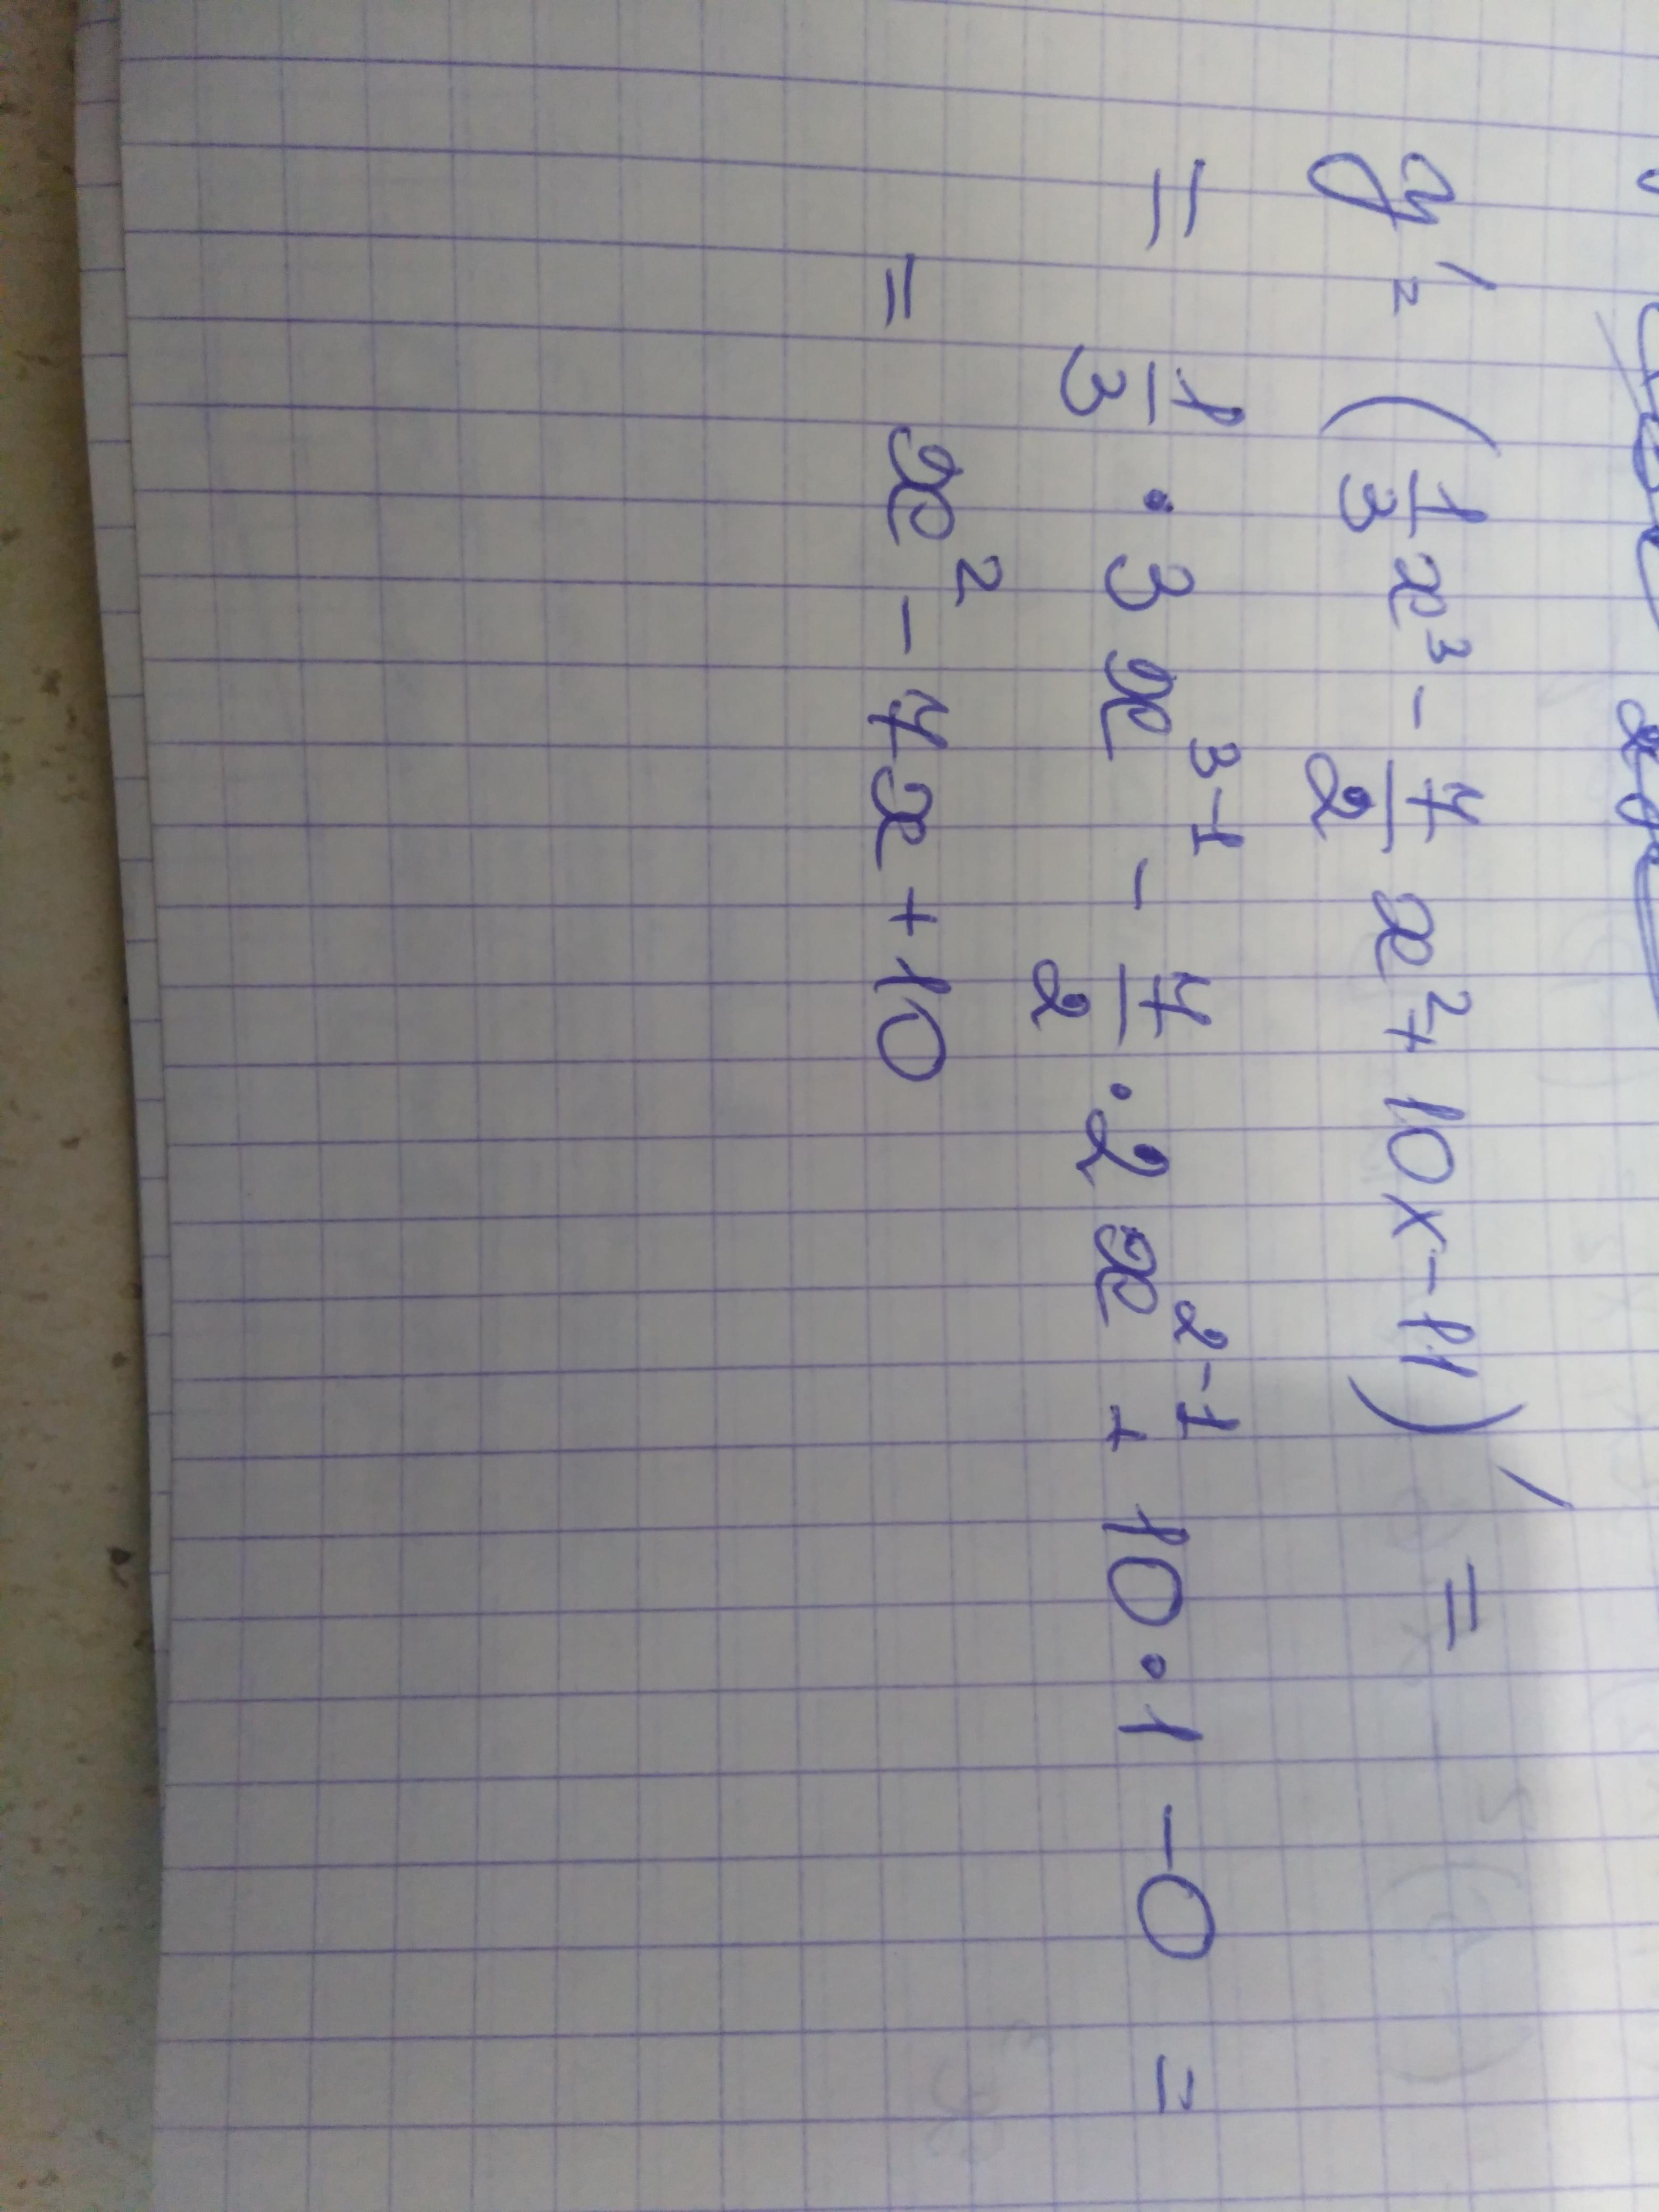 y' = (1/3 x³ - 7/2 x² + 10x - 11)' =
= 1/3 · 3x³⁻¹ - 7/2 · 2x²⁻¹ + 10 · 1 - 0 =
= x² - 7x + 10